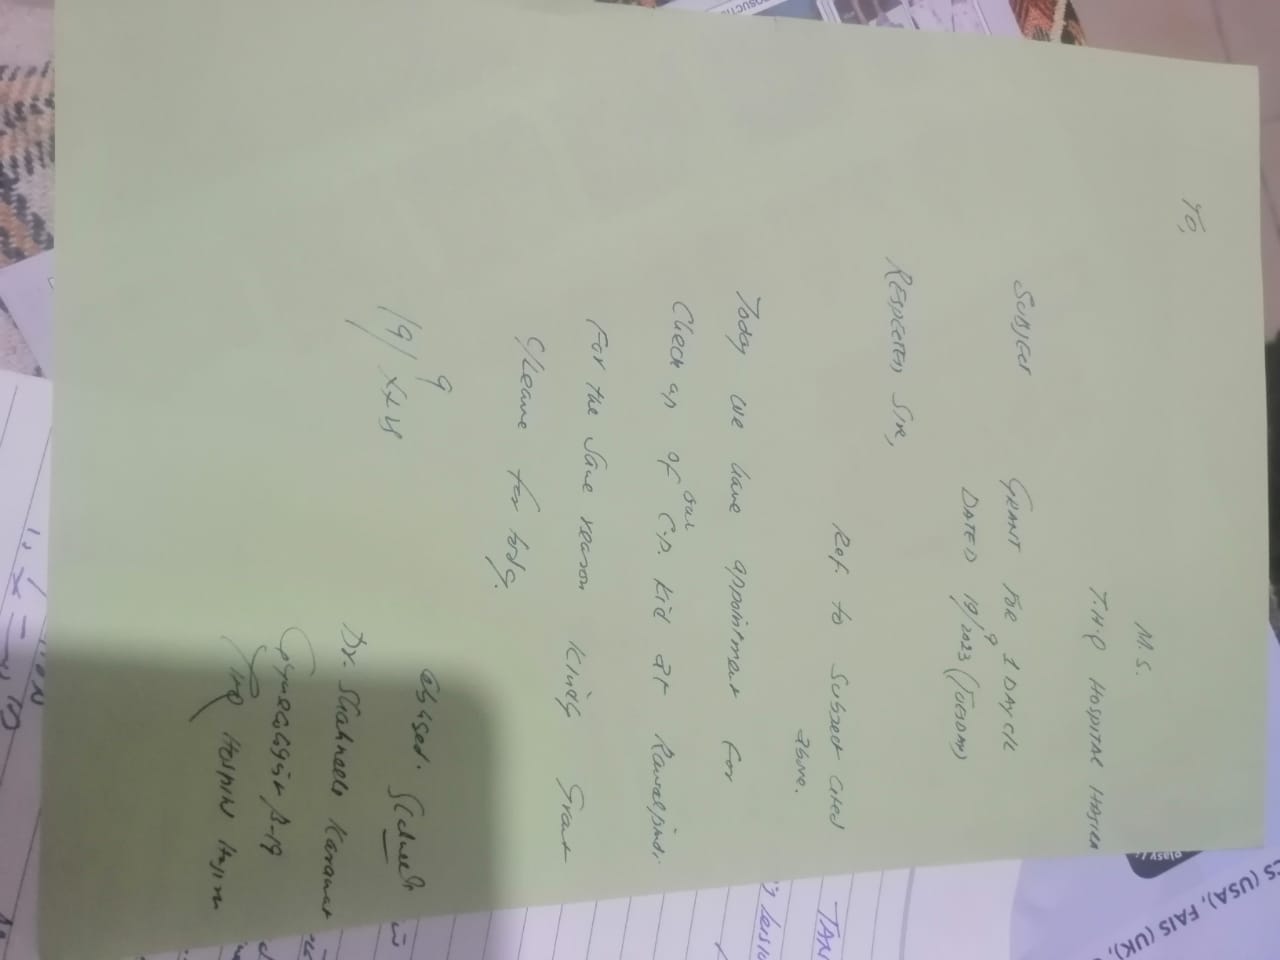 TO,
M.S.
T.H.Q HOSPITAL HAZRO
SUBJECT GRANT FOR 1 DAY C/L
DATED 19/9/2023 (TUESDAY)
RESPECTED SIR,
Ref. to subject cited
above.
Today we have appointment for
Check up of our C.P. kid at Rawalpindi.
For the same reason kindly grant
C/Leave for today.
19/9
Obliged.
Dr. Shahneela
Gynecologist B-19
THQ Hospital
TAX
CS (USA), FAIS (UK),